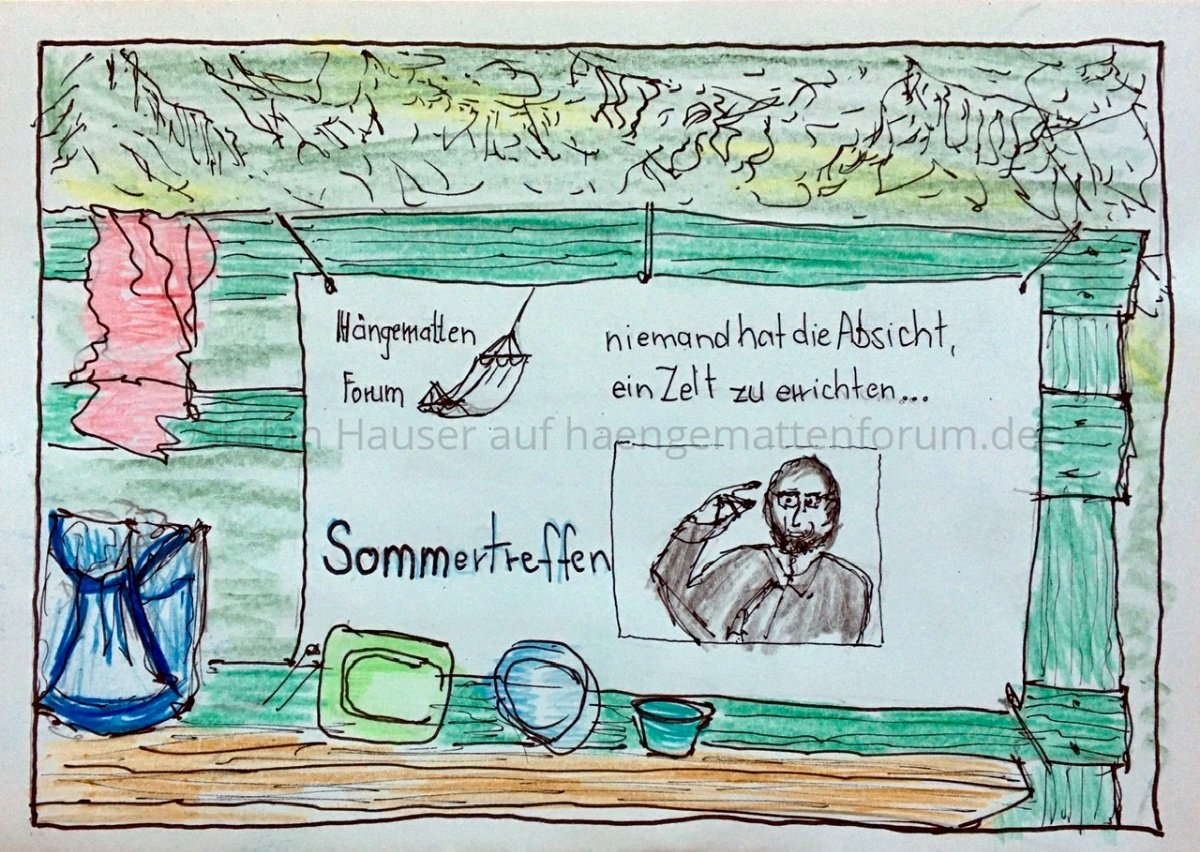 Hängematten
Forum
niemand hat die Absicht,
ein Zelt zu errichten...
Stefan Hauser auf haengemattenforum.de
Sommertreffen